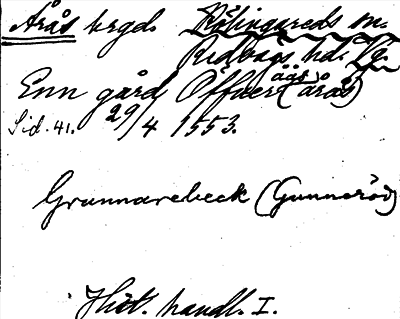 Årås hrgd. Kölingareds sn.
Redvägs hd. Vg.
Enn gård Öffuer åås (årås)
Sid. 41. 29/4 1553.
Grunnarebeck (Gunneröd)
Hist. handl. I.